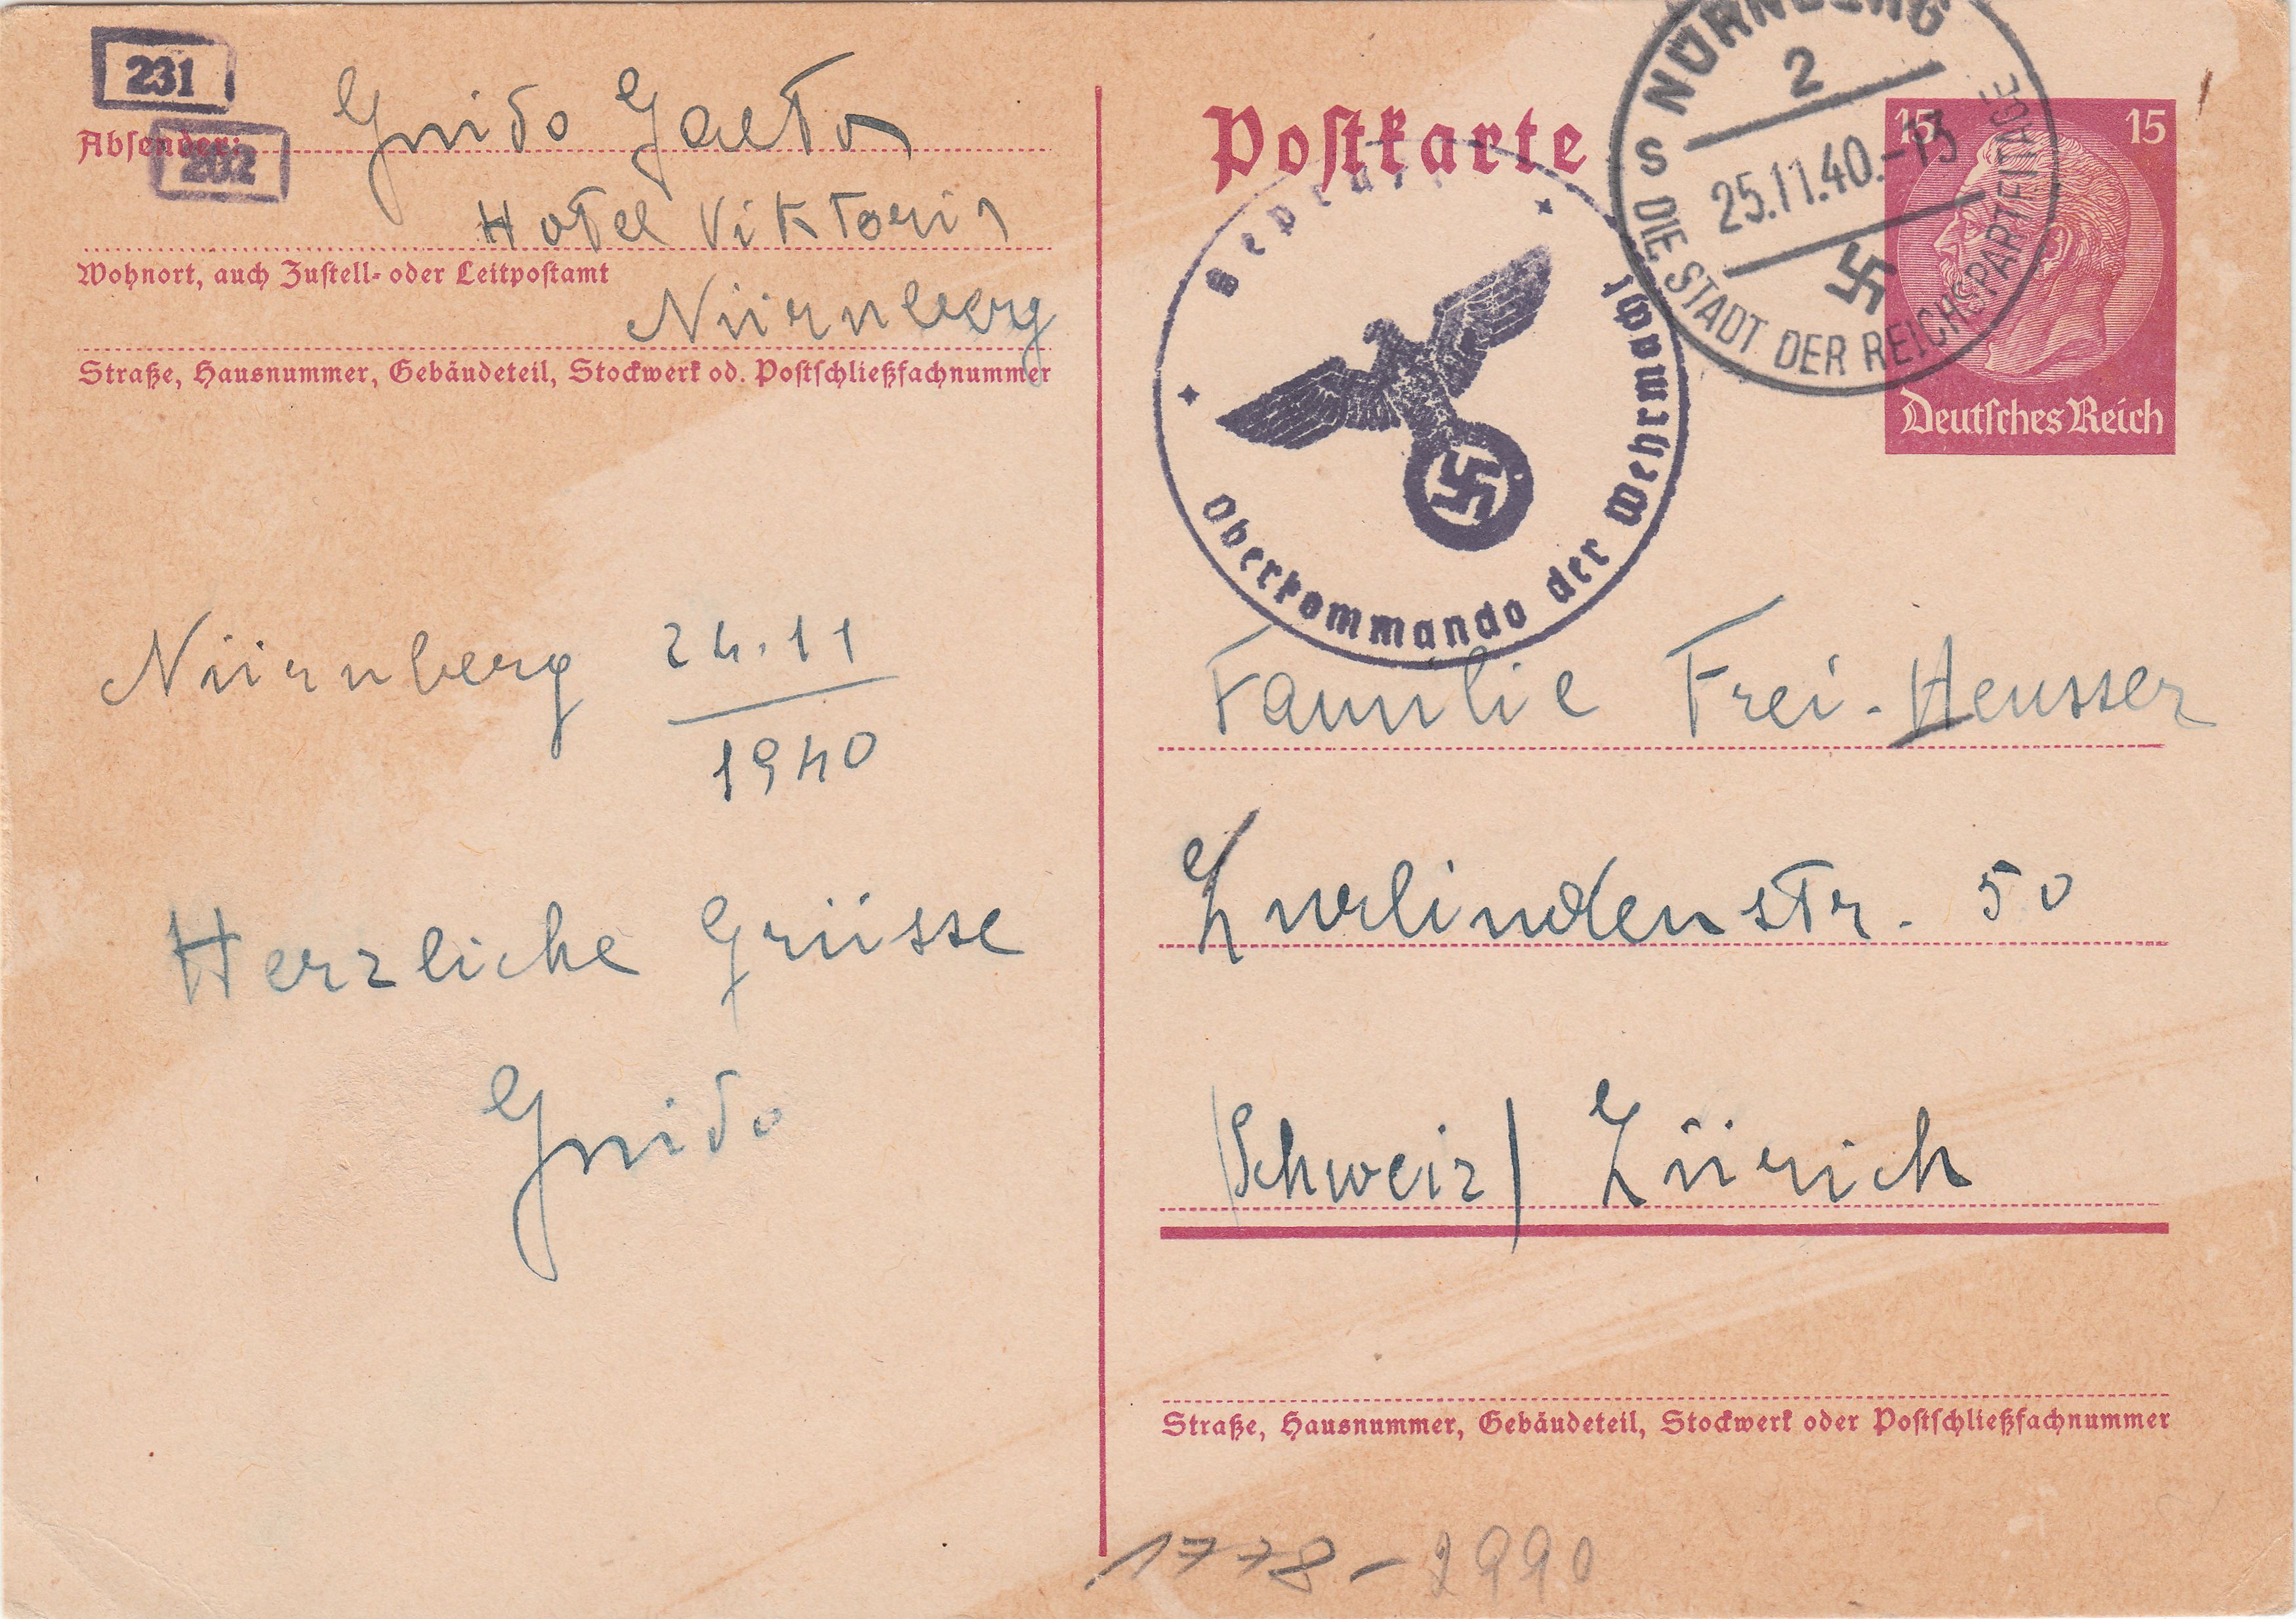 231
Absender:
202
Guido Gaeta
Hotel Viktoria
Wohnort, auch Zustell- oder Leitpostamt
Nürnberg
Straße, Hausnummer, Gebäudeteil, Stockwerk od. Postschließfachnummer
Nürnberg 24.11
1940
Herzliche Grüsse
Guido
Postkarte
NÜRNBERG
2
S
25.11.40.-13
DIE STADT DER REICHSPARTEITAGE
15 15
Deutsches Reich
Geprüft
Oberkommando der Wehrmacht
Familie Frei-Heusser
Zurlindenstr. 50
(Schweiz) Zürich
Straße, Hausnummer, Gebäudeteil, Stockwerk oder Postschließfachnummer
1778- 2990